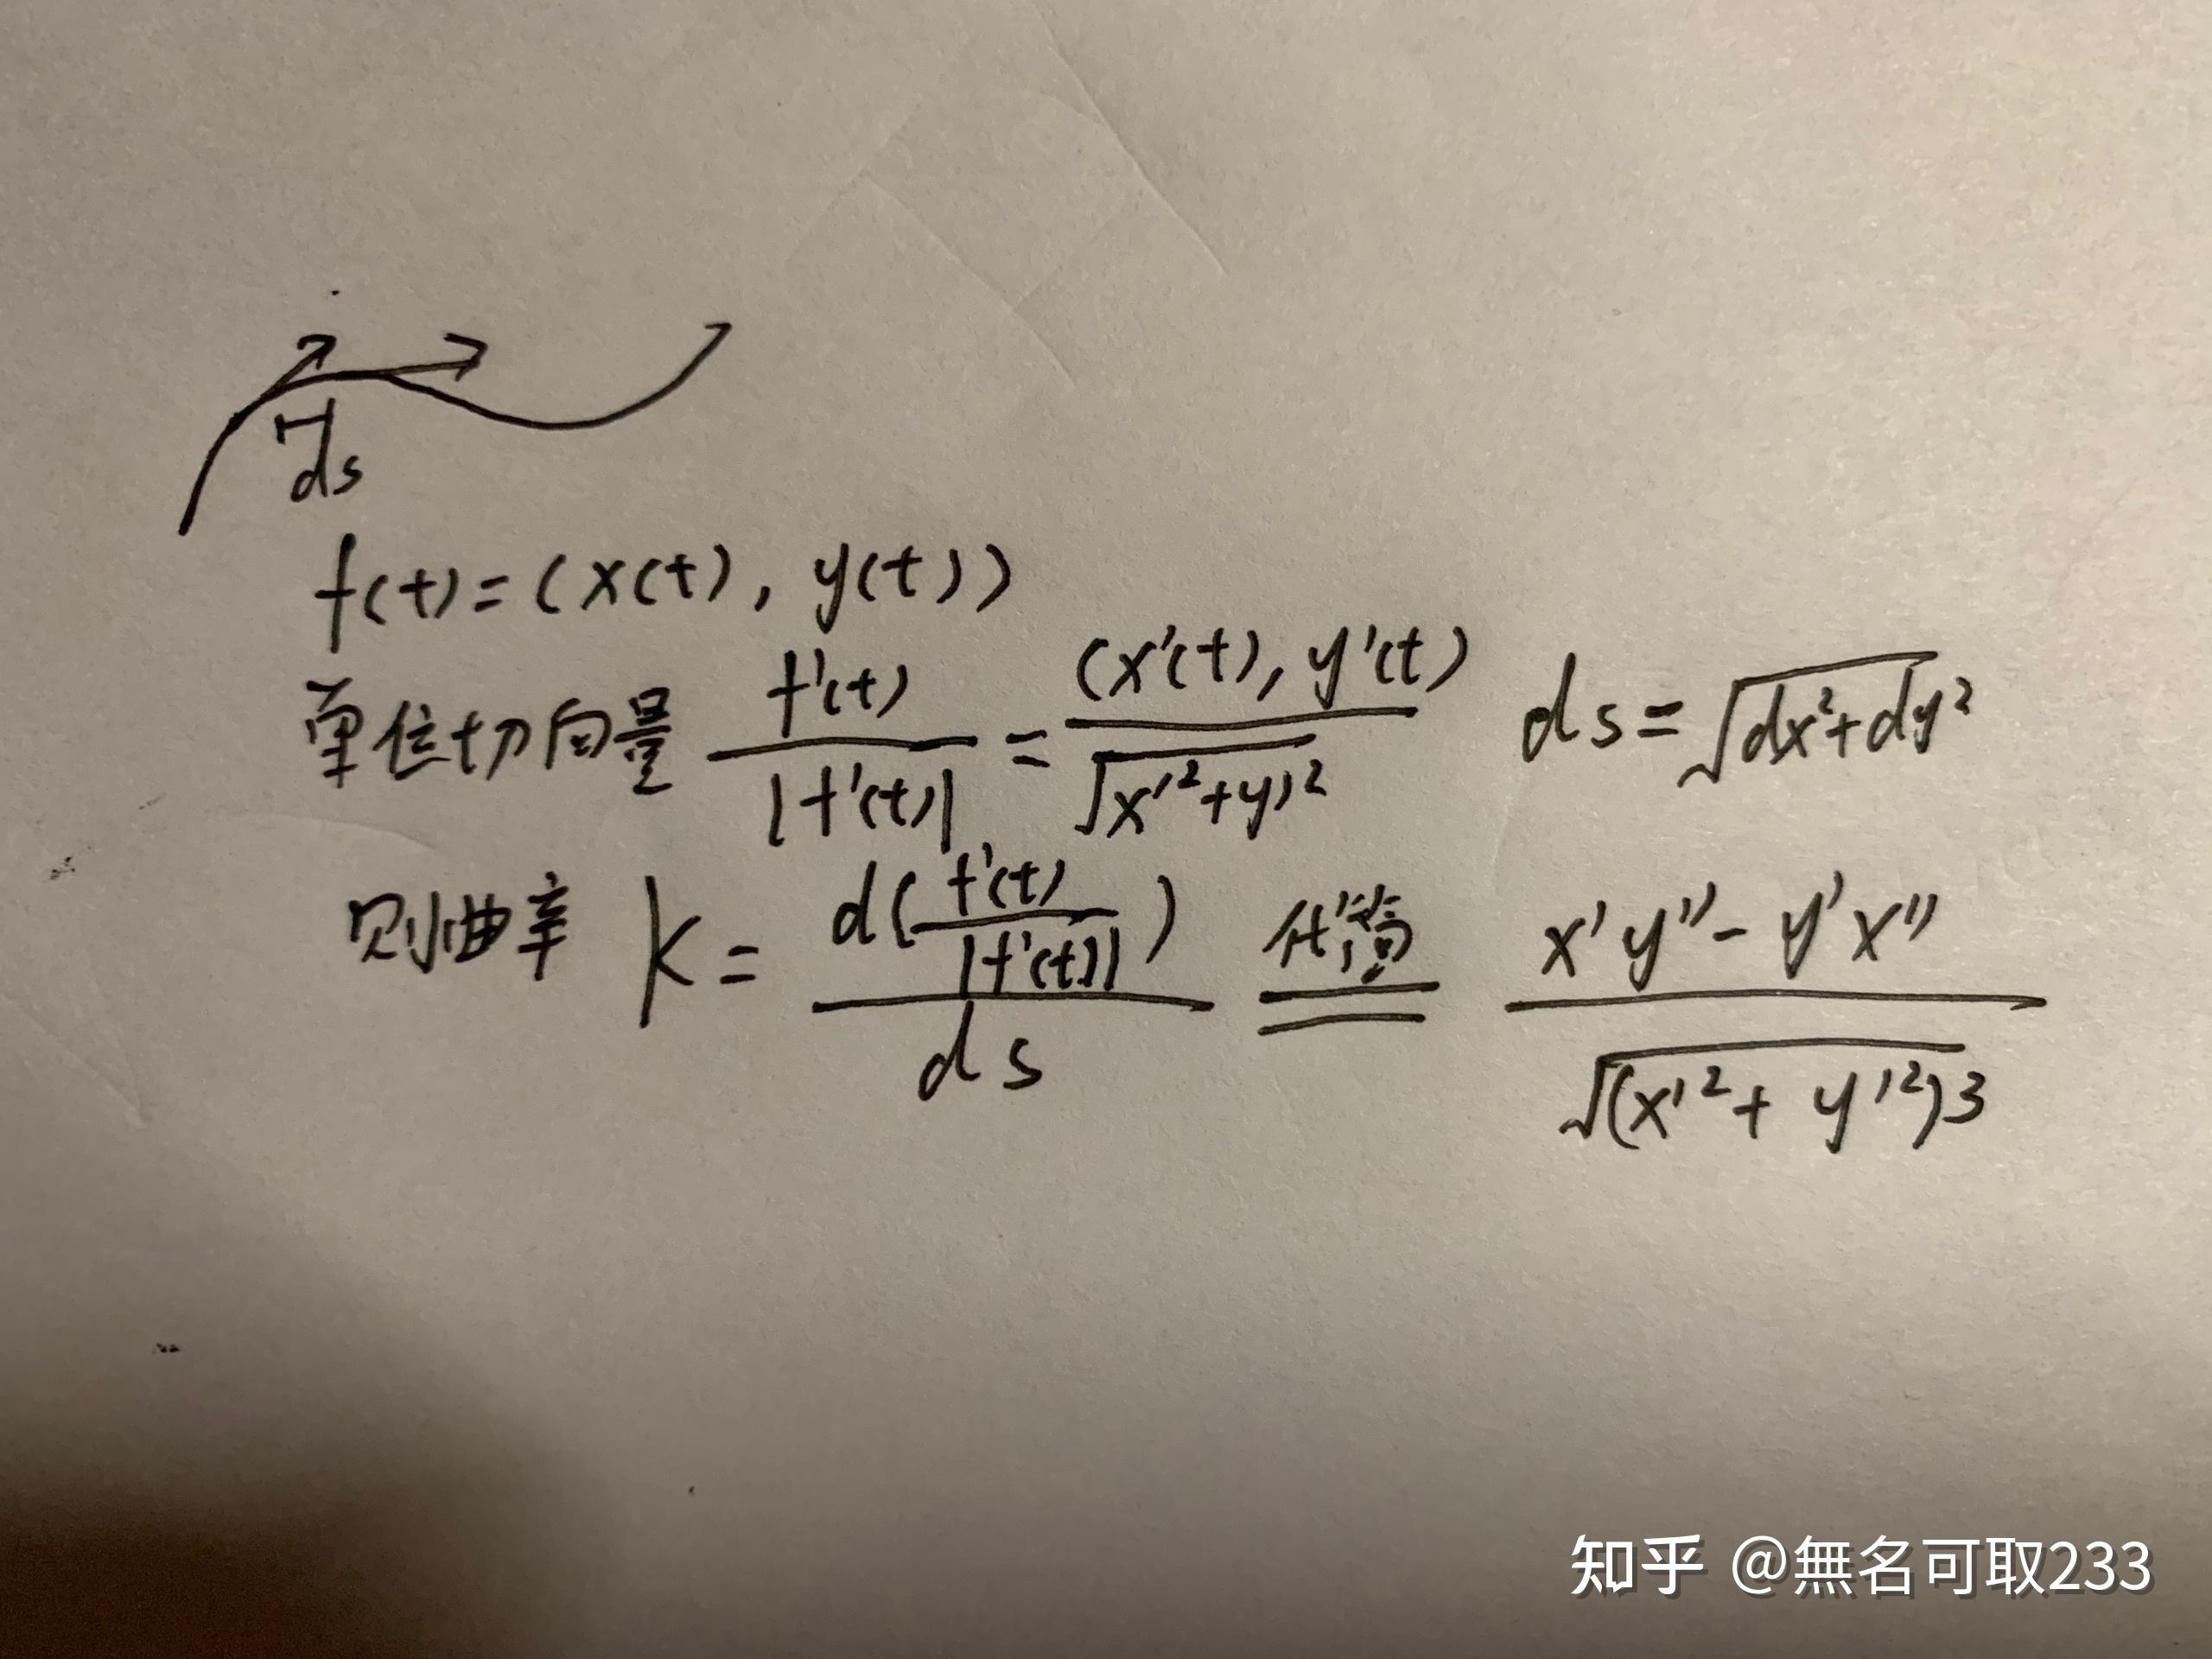 ds
f(t)=(x(t), y(t))
单位切向量 f'(t)/|f'(t)| = (x'(t), y'(t)/√x'²+y'² ds=√dx²+dy²
则曲率 K = d(f'(t)/|f'(t)|)/ds 化简 = x'y''-y'x''/√(x'²+y'²)3
知乎 @無名可取233